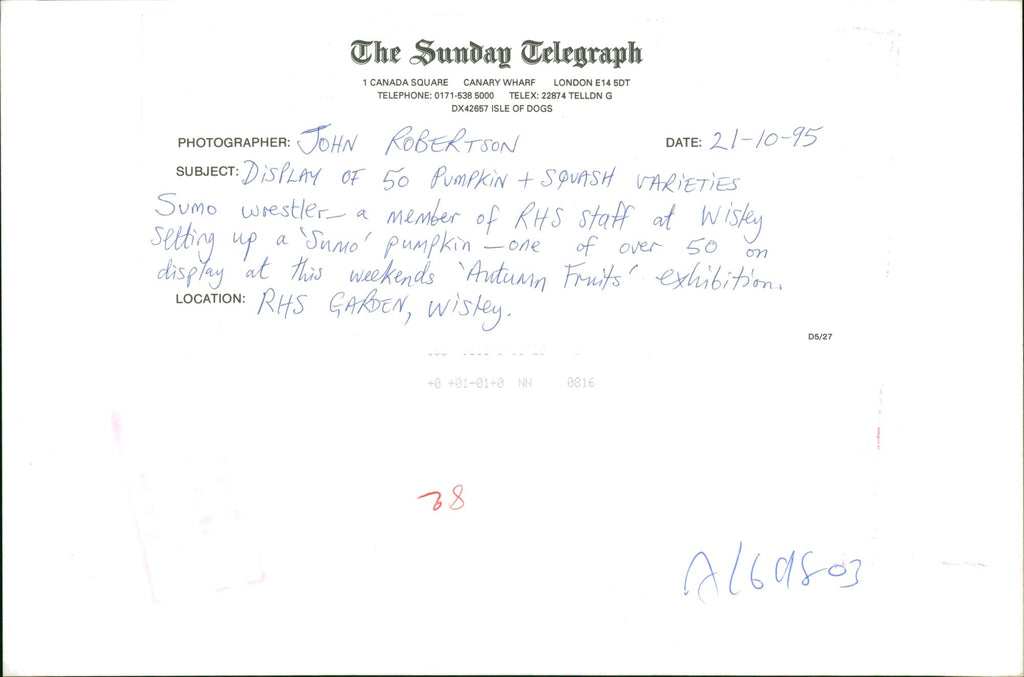 The Sunday Telegraph
1 CANADA SQUARE CANARY WHARF LONDON E14 5DT
TELEPHONE: 0171-538 5000 TELEX: 22874 TELLDN G
DX42657 ISLE OF DOGS
PHOTOGRAPHER: JOHN ROBERTSON DATE: 21-10-95
SUBJECT: DISPLAY OF 50 PUMPKIN + SQUASH VARIETIES
Sumo wrestler - a member of RHS staff at Wisley
setting up a 'Sumo' pumpkin - one of over 50 on
display at this weekends 'Autumn Fruits' exhibition.
LOCATION: RHS GARDEN, Wisley.
D5/27
+0 +01-01+0 NN 0816
38
A169803